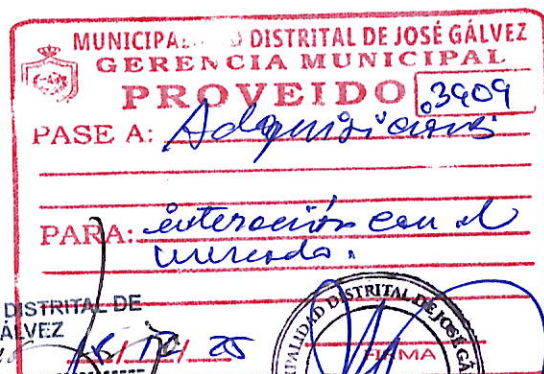 MUNICIPAL DISTRITAL DE JOSÉ GÁLVEZ
GERENCIA MUNICIPAL
PROVEIDO 3909
PASE A: Adquisiciones
PARA: interacción con el
mercado.
DISTRITAL DE
ÁLVEZ
/ 12 / 25
FIRMA
DISTRITAL DE JOSÉ GÁ